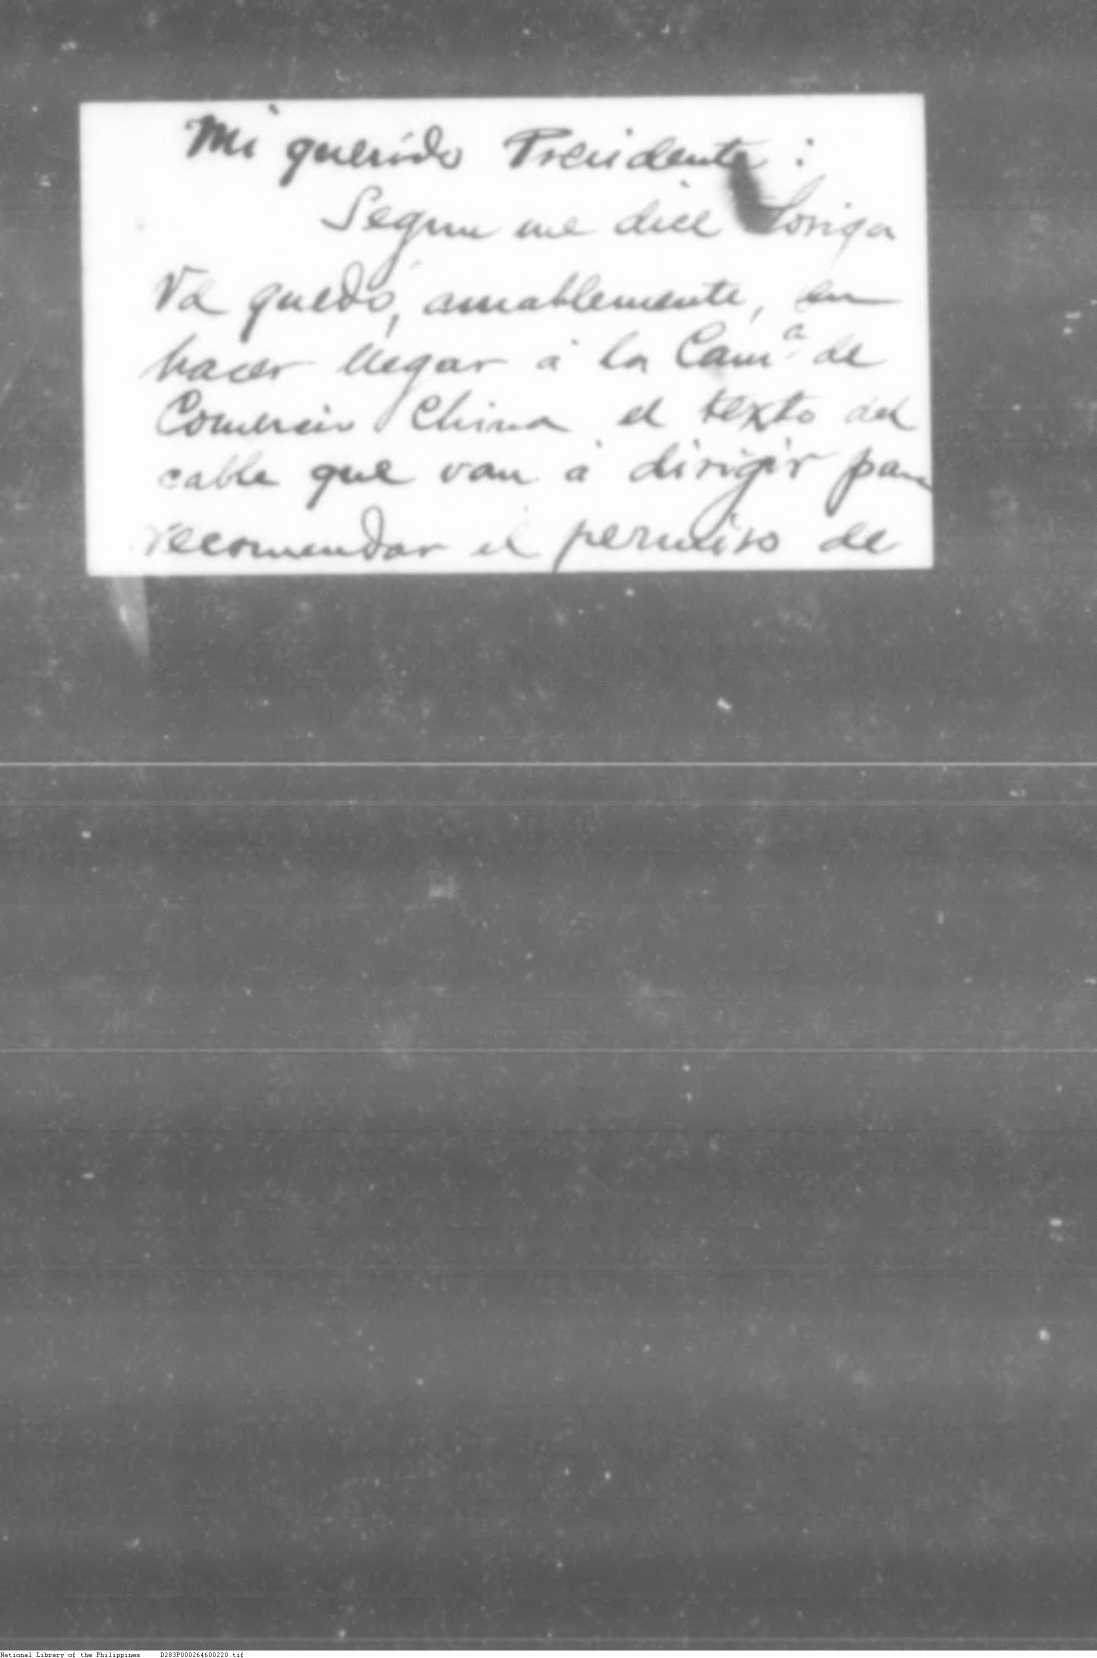 Mi querido Presidente:
Segun me dice Loriga
Vd quedó, amablemente, en
hacer llegar á la Cam.ª de
Comercio China el texto del
cable que van á dirigir para
recomendar el permiso de
National Library of the Philippines D283P000264600220.tif